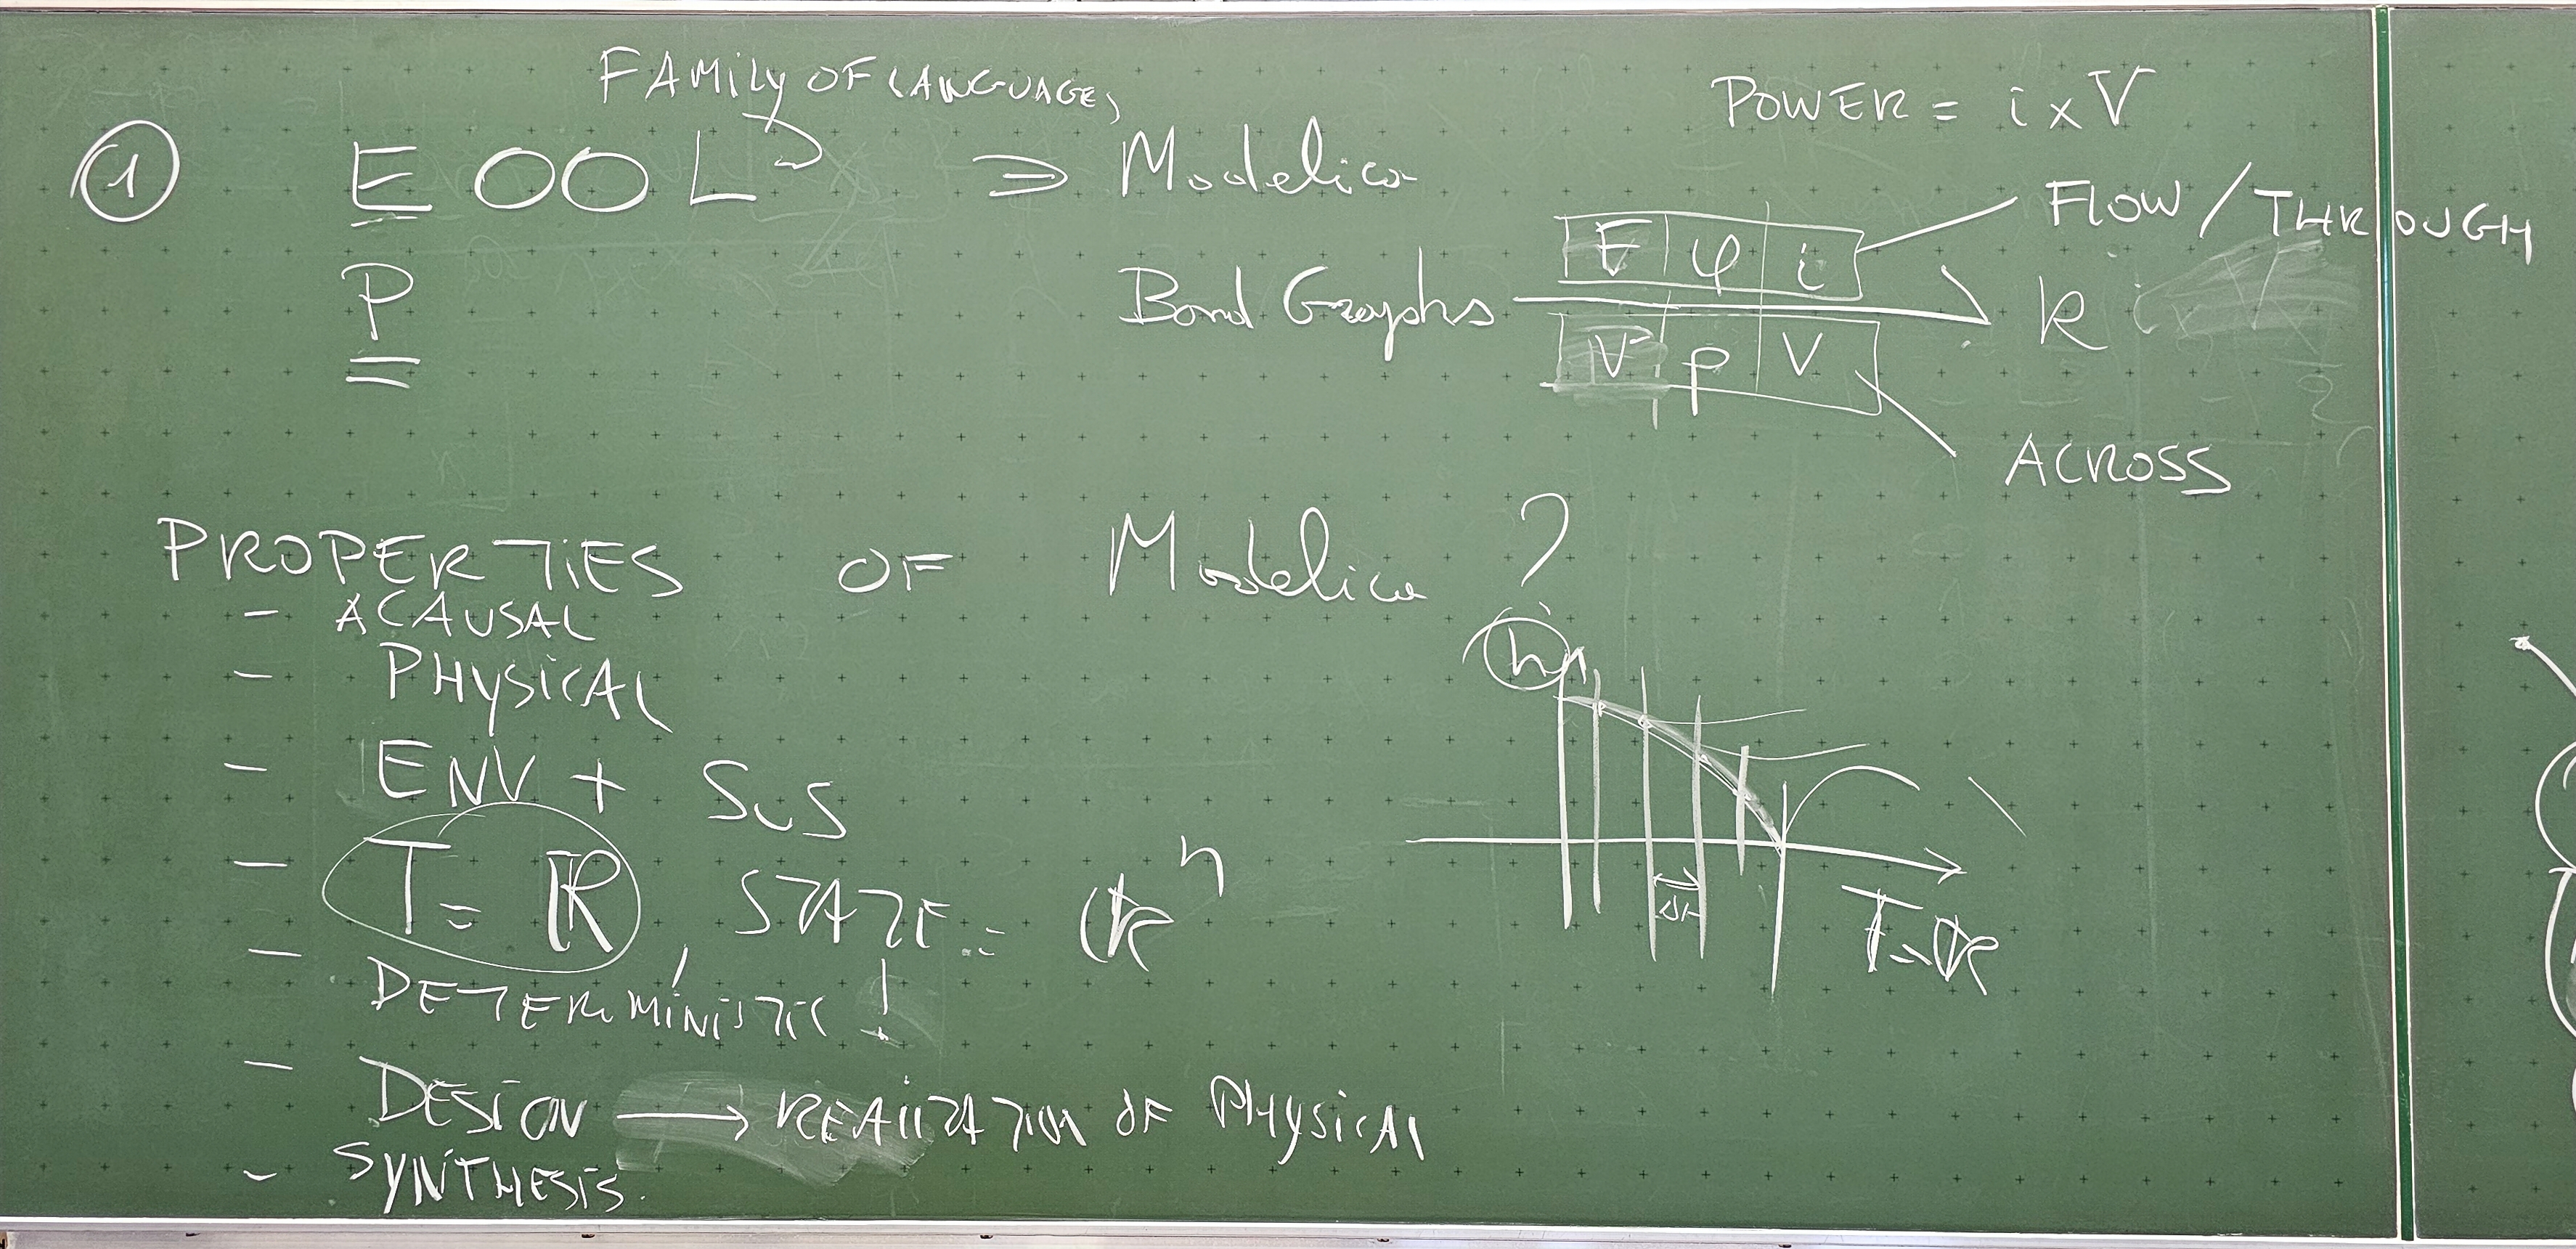 FAMILY OF LANGUAGES
POWER = i x V
1
EOOL ∋ Modelica
FLOW / THROUGH
P
Bond Graphs
F φ i
V p V
R i
ACROSS
PROPERTIES OF Modelica ?
- ACAUSAL
- PHYSICAL
- ENV + SuS
- T = ℝ, STATE = ℝⁿ
- DETERMINISTIC !
- DESIGN → REALIZATION OF PHYSICAL
- SYNTHESIS.
h
Δt
T=ℝ